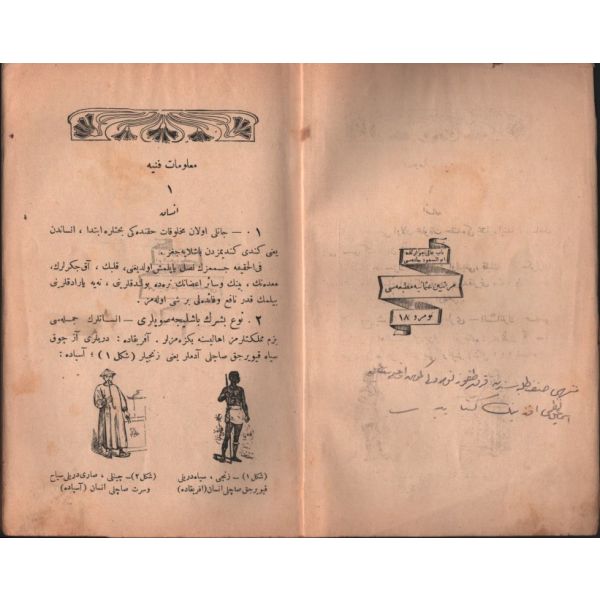 معلومات فنیه
١
انسان
٠١ — جانلی اولان مخلوقات حقنده كی بحثلره ابتدا ، انساندن
یعنی كندی كندیمزدن باشلایه‌جغز .
فی‌الحقیقه جسممزك نصل یاپلمش اولدیغنی، قلبك ، آق‌جكرلرك،
معده‌نك ، بینك وسائر اعضانك نره‌ده بولندقلرینی ، نه‌یه یارادقلرینی
بیلمك قدر نافع وفائده‌لی بر شی اوله‌مز .
٠٢ نوع بشرك باشلیجه صویلری — انسانلرك جمله‌سی
بزم مملكتلرمز اهالیسنه بكزه‌مزلر . آفریقاده : دریلری آز چوق
سیاه قیویرجق صاچلی آدملر یعنی زنجیلر (شكل ١) ؛ آسیاده :
(شكل ١) — زنجی ، سیاه دریلی
قیویرجق صاچلی انسان (آفریقاده)
(شكل ٢) — چینلی ، صاری دریلی سیاح
وسرت صاچلی انسان (آسیاده)
باب عالی جوارنده
ابوالسعود جاده‌سی
عثمانیه مطبعه‌سی
نومرو ١٨